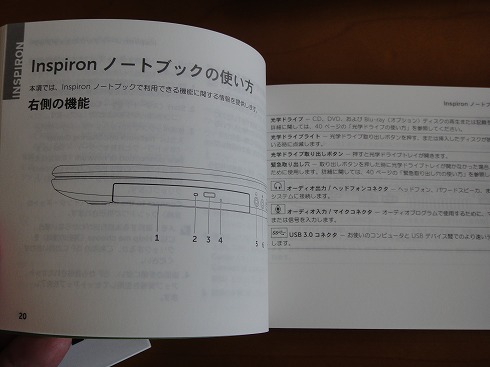 INSPIRON
Inspiron ノートブックの使い方
本項では、Inspiron ノートブックで利用できる機能に関する情報を提供します。
右側の機能
1
2
3
4
5
6
20
Inspiron ノートブ
光学ドライブ — CD、DVD、および Blu-ray（オプション）ディスクの再生または記録を
詳細に関しては、40 ページの「光学ドライブの使い方」を参照してください。
光学ドライブライト — 光学ドライブ取り出しボタンを押す、または挿入したディスクが
いる時に点滅します。
光学ドライブ取り出しボタン — 押すと光学ドライブトレイが開きます。
緊急取り出し穴 — 取り出しボタンを押した時に光学ドライブトレイが開かなかった場合
ために使用します。詳細に関しては、40 ページの「緊急取り出し穴の使い方」を参照
オーディオ出力 / ヘッドフォンコネクタ — ヘッドフォン、パワードスピーカ、
システムに接続します。
オーディオ入力 / マイクコネクタ — オーディオプログラムで使用するために、
または信号を入力します。
USB 3.0 コネクタ — お使いのコンピュータと USB デバイス間でのより速い
します。